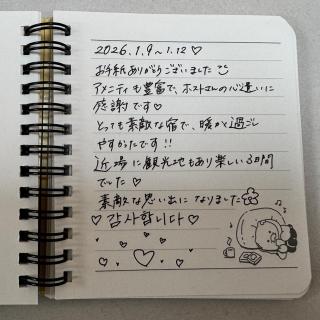 2026.1.9〜1.12♡
お手紙ありがとうございました
アメニティも豊富で、ホストさんの心遣いに
感謝です♡
とっても素敵な宿で、暖かく過ごし
やすかったです!!
近場に観光地もあり楽しい3日間
でした♡
素敵な思い出になりました
♡감사합니다♡